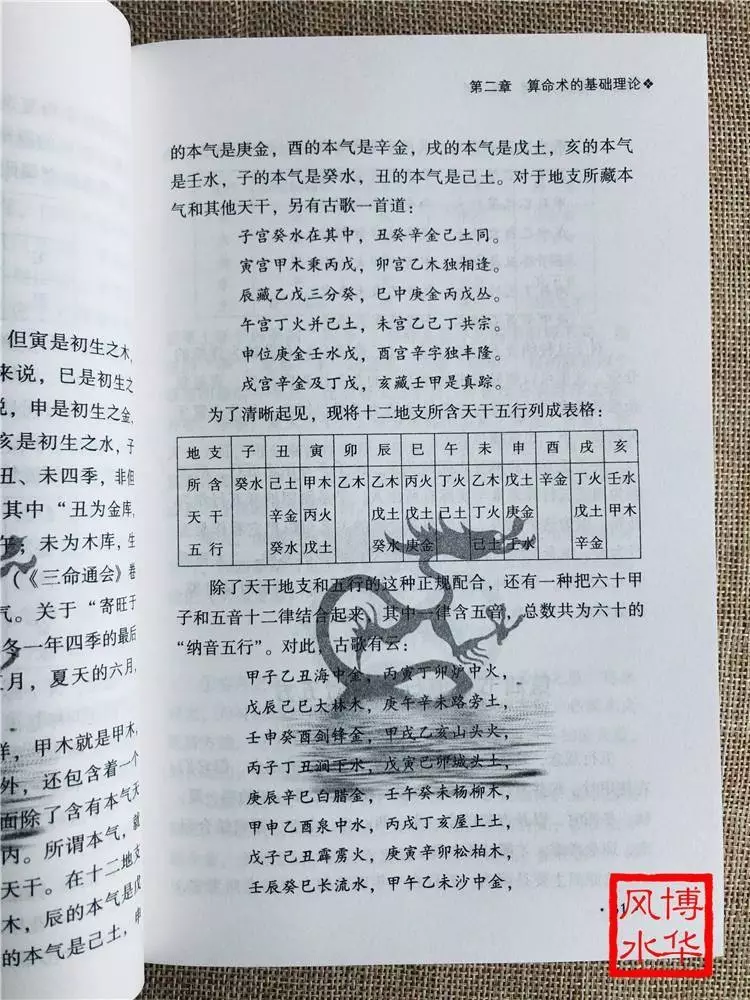 但寅是初生之木,
来说,巳是初生之
说,申是初生之金,
亥是初生之水,子
丑、未四季,非但
其中“丑为金库,
午;未为木库,生
(《三命通会》卷
气。关于“寄旺于
冬一年四季的最后
二月,夏天的六月,
样,甲木就是甲木,
外,还包含着一个
面除了含有本气天
内。所谓本气,就
天干。在十二地支
木,辰的本气是戊
的本气是己土,申
第二章 算命术的基础理论❖
的本气是庚金,酉的本气是辛金,戌的本气是戊土,亥的本气
是壬水,子的本气是癸水,丑的本气是己土。对于地支所藏本
气和其他天干,另有古歌一首道:
子宫癸水在其中,丑癸辛金己土同。
寅宫甲木乘丙戊,卯宫乙木独相逢。
辰藏乙戊三分癸,巳中庚金丙戊丛。
午宫丁火并己土,未宫乙己丁共宗。
申位庚金壬水戊,酉宫辛字独丰隆。
戌宫辛金及丁戊,亥藏壬甲是真踪。
为了清晰起见,现将十二地支所含天干五行列成表格:
地支 子 丑 寅 卯 辰 巳 午 未 申 酉 戌 亥
所含 癸水 己土 甲木 乙木 乙木 丙火 丁火 乙木 戊土 辛金 丁火 壬水
天干 辛金 丙火 戊土 戊土 己土 丁火 庚金 戊土 甲木
五行 癸水 戊土 癸水 庚金 己土 壬水 辛金
除了天干地支和五行的这种正规配合,还有一种把六十甲
子和五音十二律结合起来,其中一律含五音,总数共为六十的
“纳音五行”。对此,古歌有云:
甲子乙丑海中金,丙寅丁卯炉中火,
戊辰己巳大林木,庚午辛未路旁土,
壬申癸酉剑锋金,甲戌乙亥山头火,
丙子丁丑涧下水,戊寅己卯城头土,
庚辰辛巳白腊金,壬午癸未杨柳木,
甲申乙酉泉中水,丙戌丁亥屋上土,
戊子己丑霹雳火,庚寅辛卯松柏木,
壬辰癸巳长流水,甲午乙未沙中金,
博华
风水